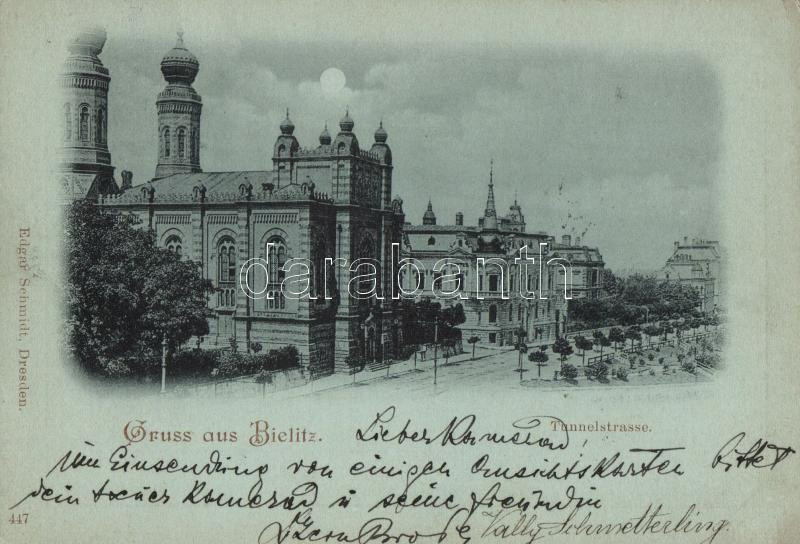 darabanth
Edgar Schmidt, Dresden.
Gruss aus Bielitz.
Tunnelstrasse.
Lieber Kamerad!
Um Einsendung von einigen Ansichtskarten bittet
dein treuer Kamerad u seine Freundin
Vally Schmetterling.
447